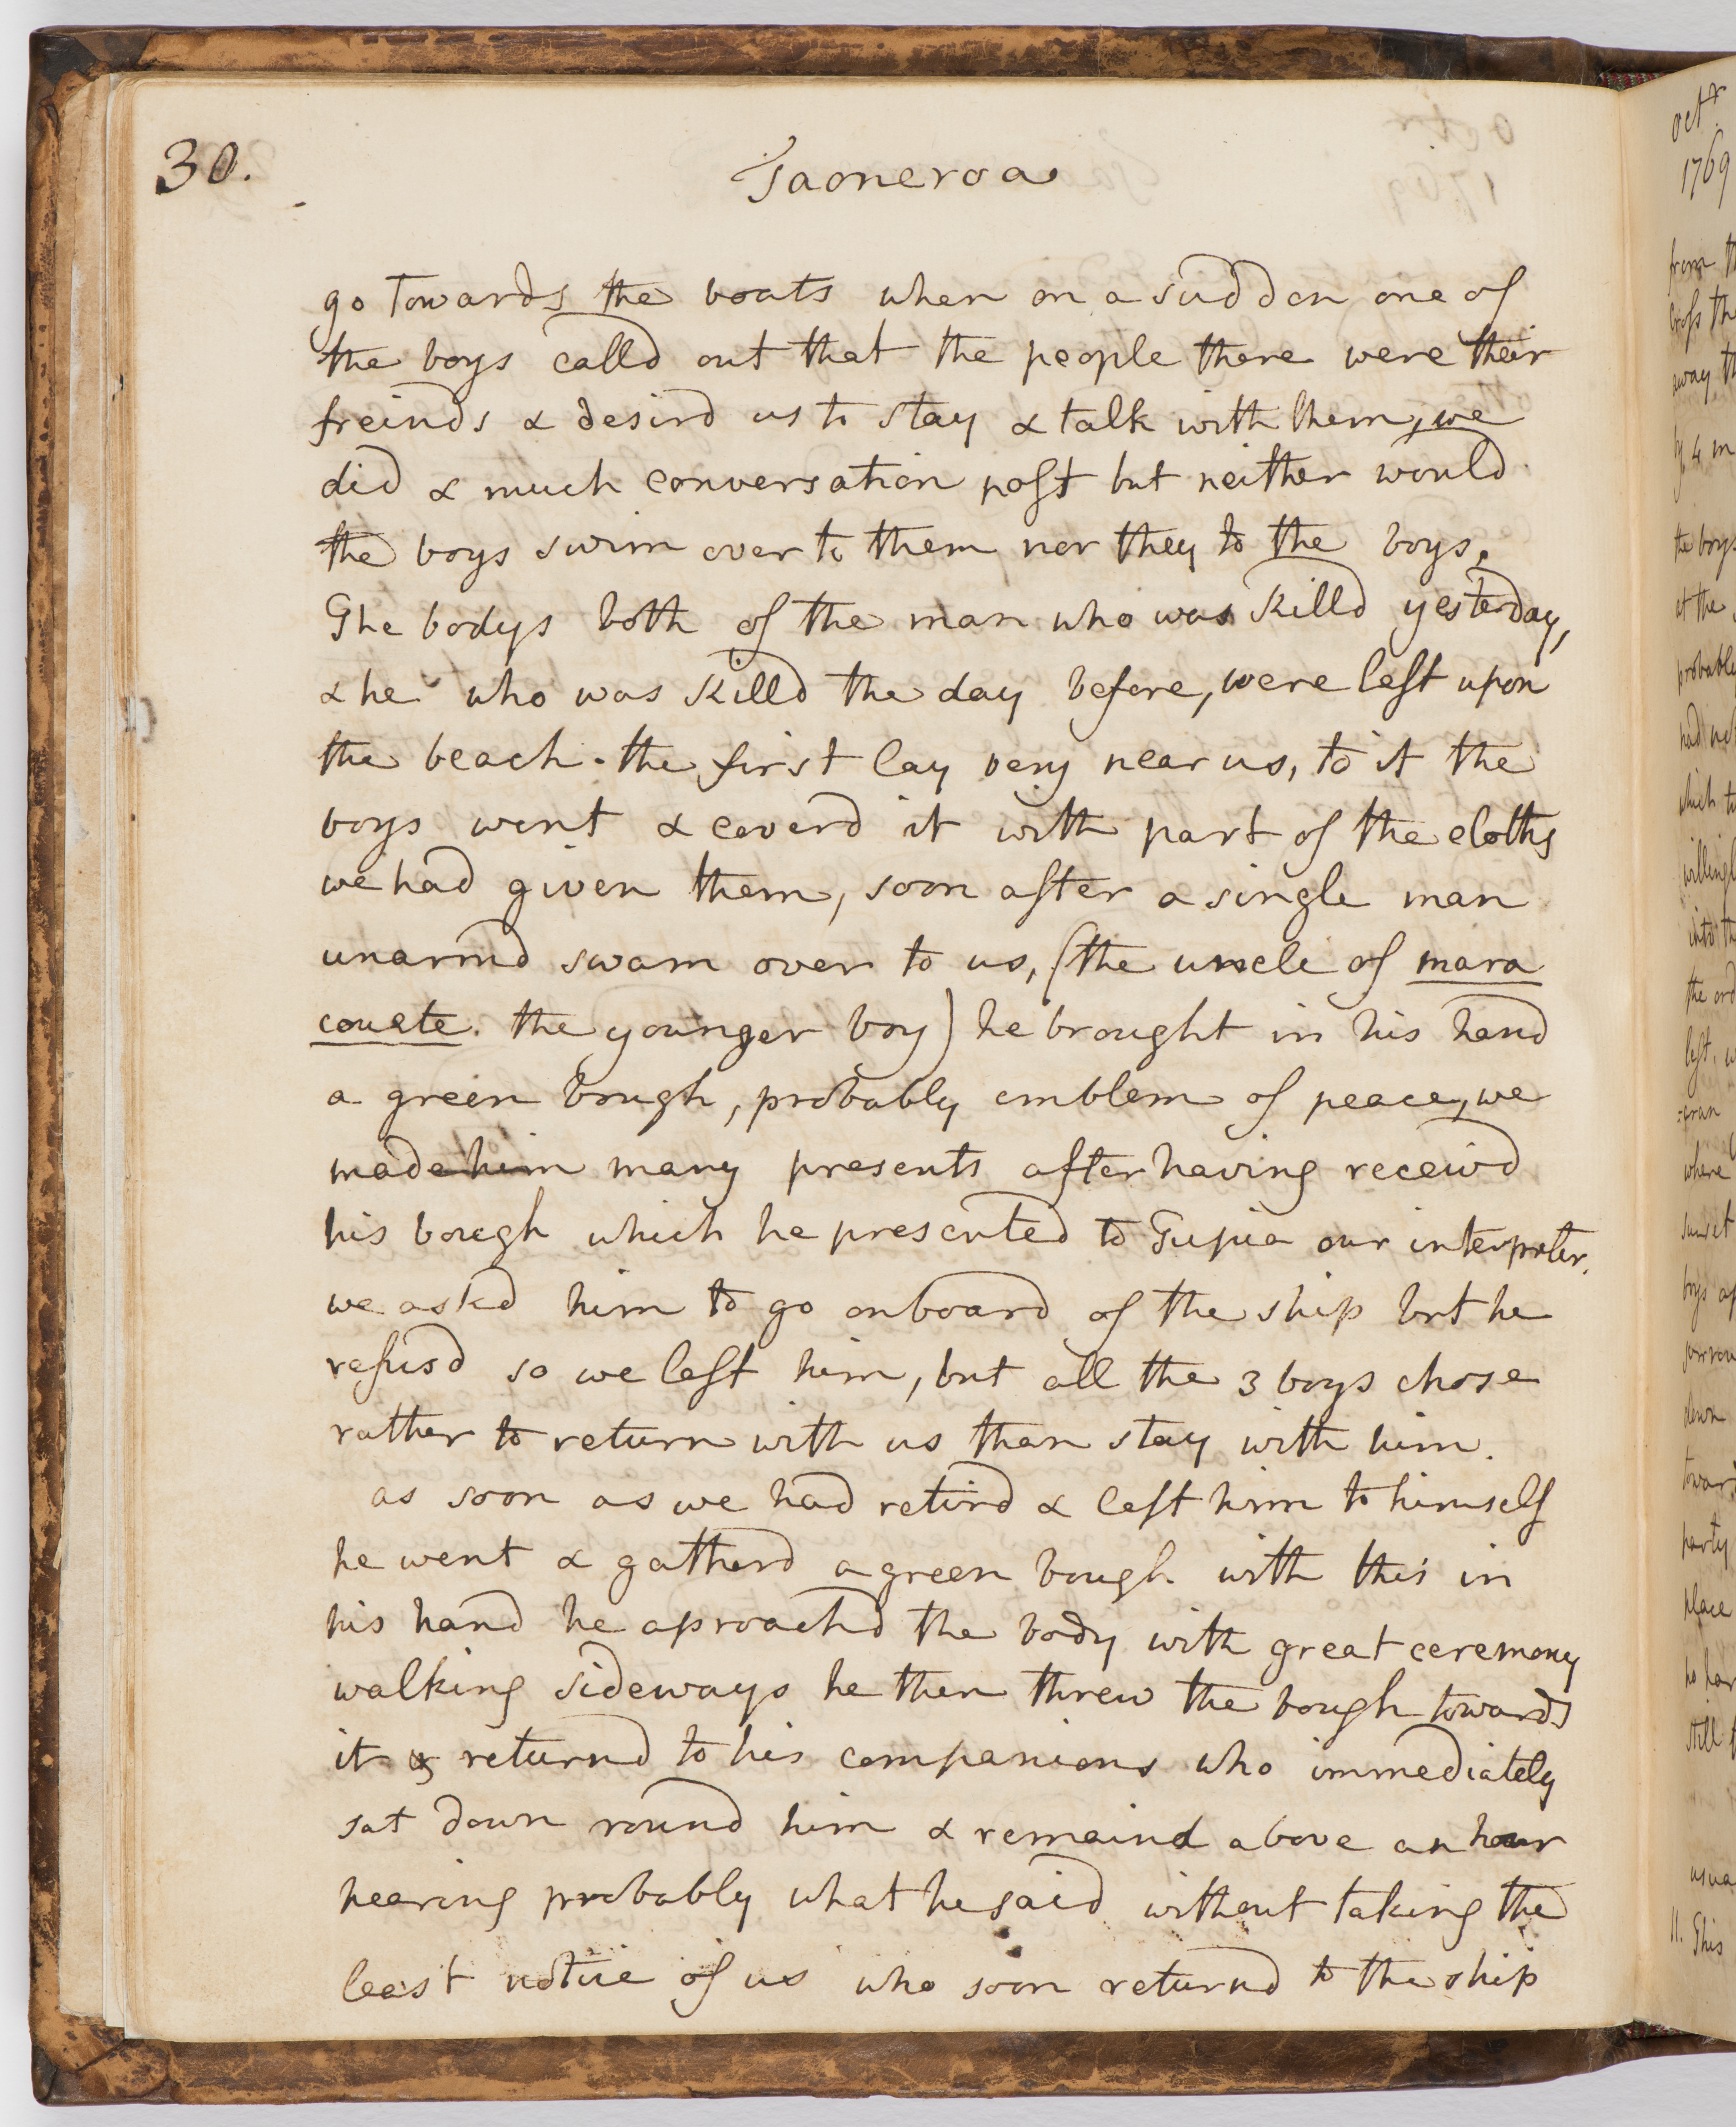 30.
Taoneroa
go towards the boats when on a sudden one of
the boys calld out that the people there were their
freinds & desird us to stay & talk with them, we
did & much conversation past but neither would
the boys swim over to them nor they to the boys.
The bodys both of the man who was killd yesterday,
& he who was killd the day before, were left upon
the beach. the first lay very near us, to it the
boys went & coverd it with part of the cloths
we had given them, soon after a single man
unarmd swam over to us, (the uncle of mara
couete. the younger boy) he brought in his hand
a green bough, probably emblem of peace, we
made him many presents after having receivd
his bough which he presented to Tupia our interpreter.
we askd him to go onboard of the ship but he
refusd so we left him, but all the 3 boys chose
rather to return with us than stay with him.
as soon as we had retird & left him to himself
he went & gatherd a green bough with this in
his hand he aproachd the body with great ceremony
walking sideways he then threw the bough towards
it & returnd to his companions who immediately
sat down round him & remaind above an hour
hearing probably what he said without taking the
least notice of us who soon returnd to the ship
octr
1769
from
away
by 4 m
the boys
at the
probable
which
into
where
sunset
boys
down
party
place
still
usua
11. This